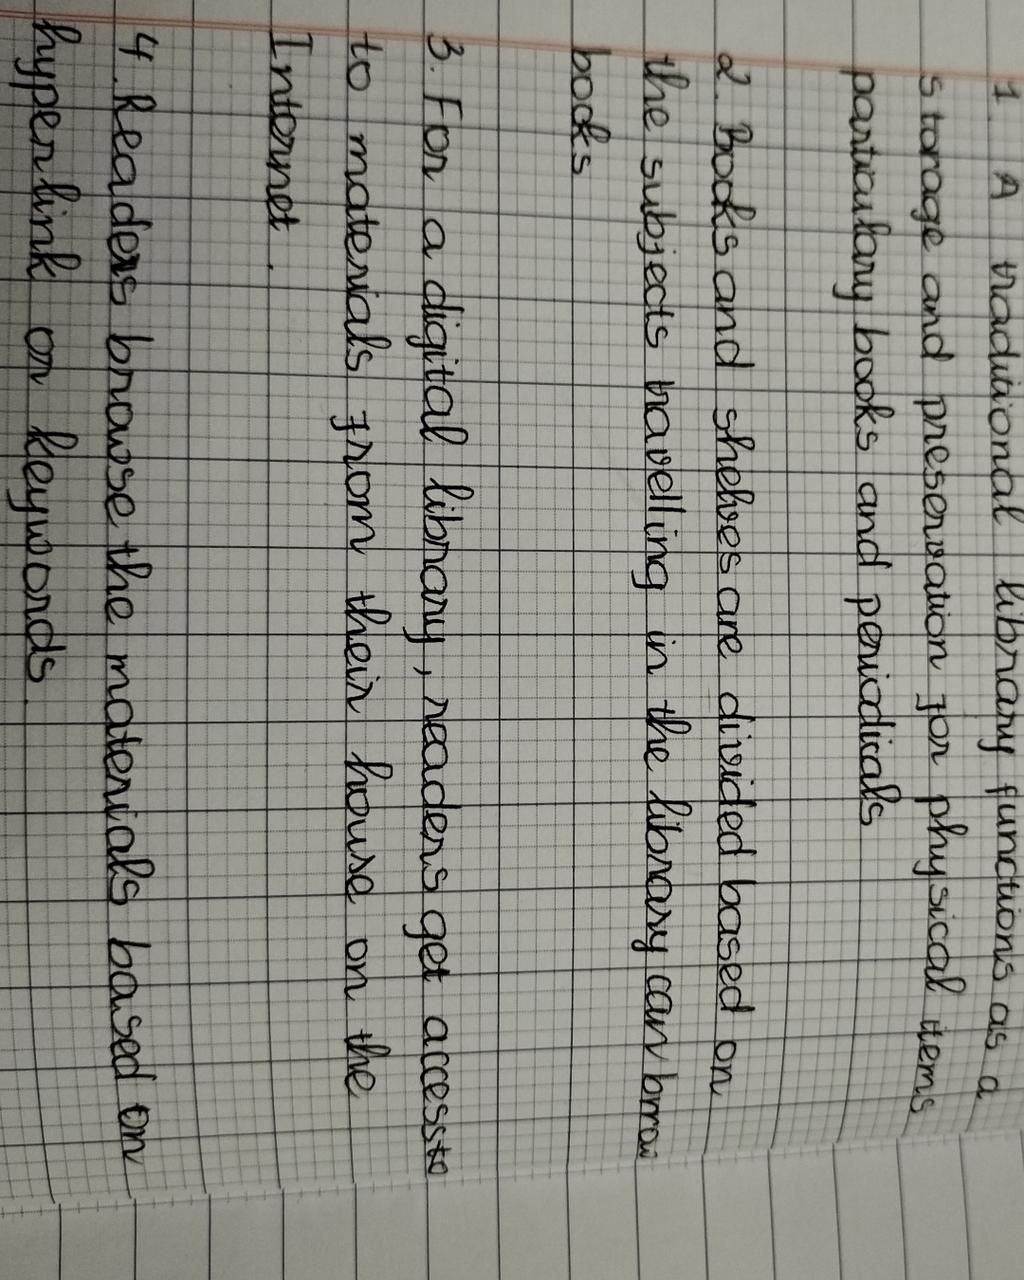 1. A traditional library functions as a
storage and preservation for physical items
particulary books and periodicals
2. Books and shelves are divided based on
the subjects travelling in the library can brrow
books
3. For a digital library, readers get access to
to materials from their house on the
Internet.
4. Readers browse the materials based on
hyperlink or keywords.